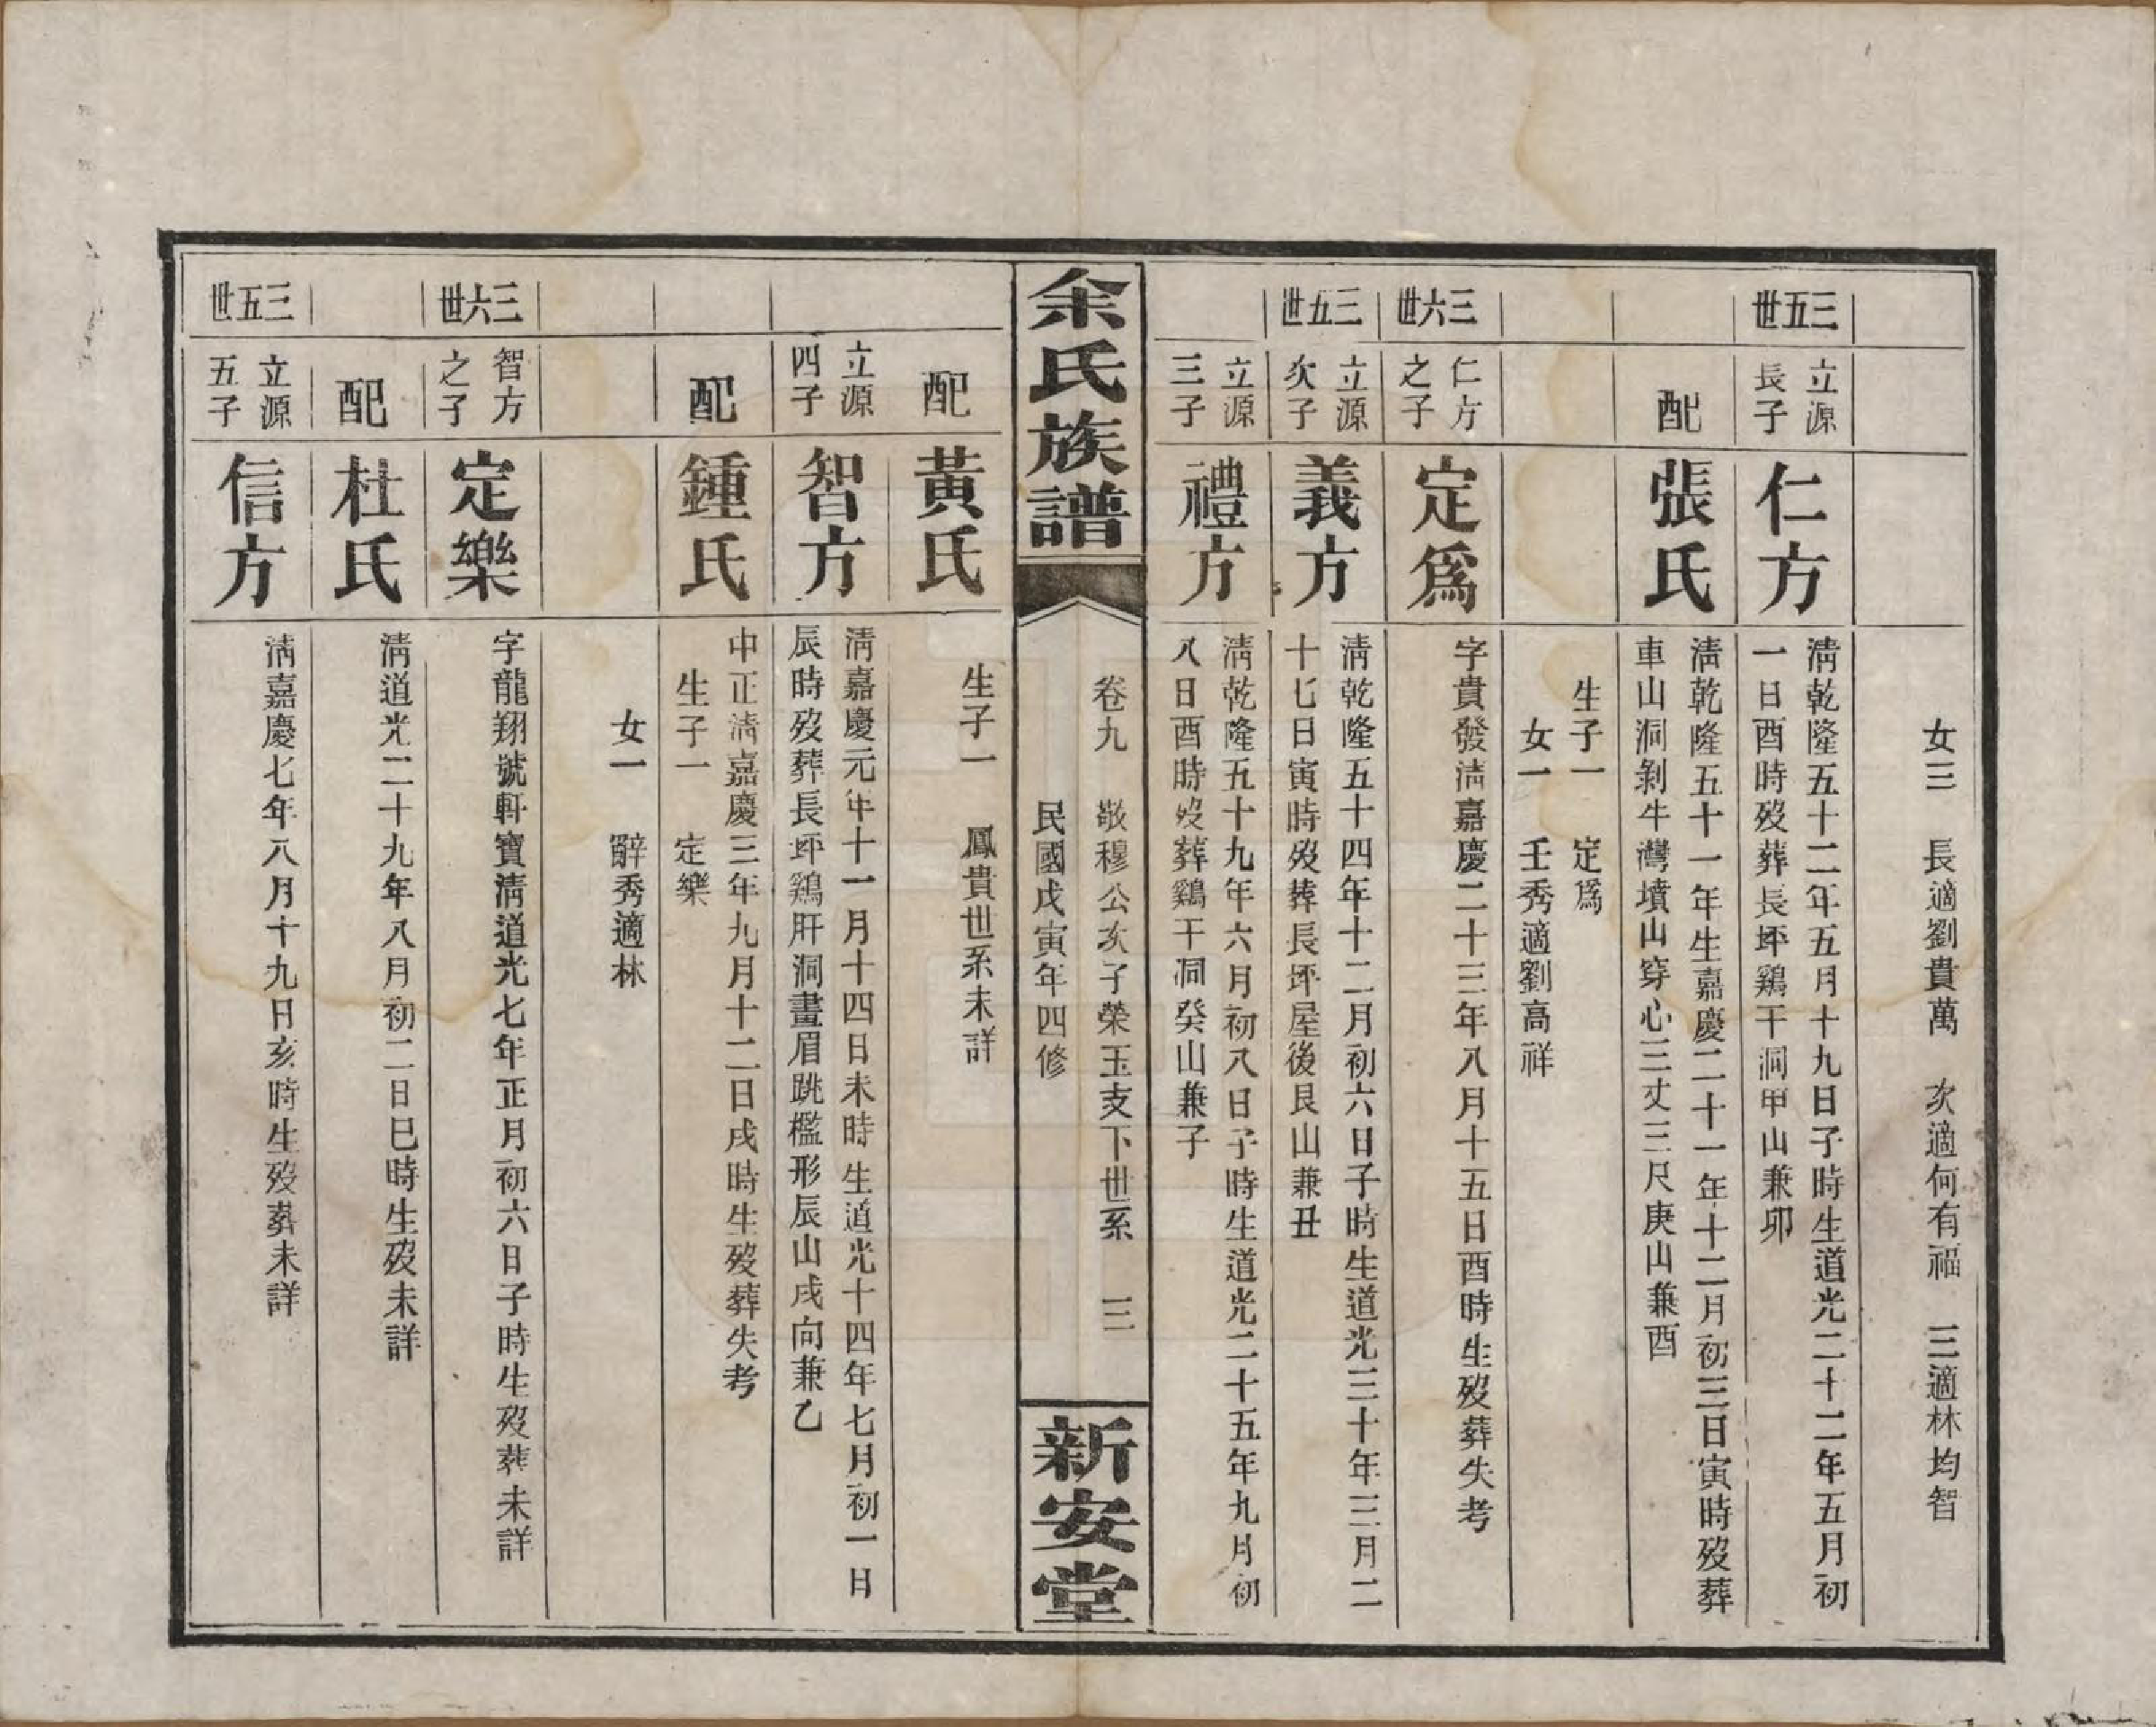 女三　長適劉貴萬　次適何有福　三適林均智
三五世
立源
長子
仁方
淸乾隆五十二年五月十九日子時生道光二十二年五月初
一日酉時歿葬長坪鷄干洞甲山兼卯
配
張氏
淸乾隆五十一年生嘉慶二十一年十二月初三日寅時歿葬
車山洞剝牛灣墳山穿心三丈三尺庚山兼酉
生子一　定爲
女一　壬秀適劉高祥
三六世
仁方
之子
定爲
字貴發淸嘉慶二十三年八月十五日酉時生歿葬失考
三五世
立源
次子
義方
淸乾隆五十四年十二月初六日子時生道光三十年三月二
十七日寅時歿葬長坪屋後艮山兼丑
立源
三子
禮方
淸乾隆五十九年六月初八日子時生道光二十五年九月初
八日酉時歿葬鷄干洞癸山兼子
余氏族譜
卷九　敬穆公亥子榮玉支下世系　三
民國戊寅年四修
新安堂
配
黃氏
生子一　鳳貴世系未詳
立源
四子
智方
淸嘉慶元年十一月十四日未時生道光十四年七月初一日
辰時歿葬長坪鷄肝洞畫眉跳檻形辰山戌向兼乙
配
鍾氏
中正淸嘉慶三年九月十二日戌時生歿葬失考
生子一　定樂
女一　辭秀適林
三六世
智方
之子
定樂
字龍翔號軒寶淸道光七年正月初六日子時生歿葬未詳
配
杜氏
淸道光二十九年八月初二日巳時生歿未詳
三五世
立源
五子
信方
淸嘉慶七年八月十九日亥時生歿葬未詳